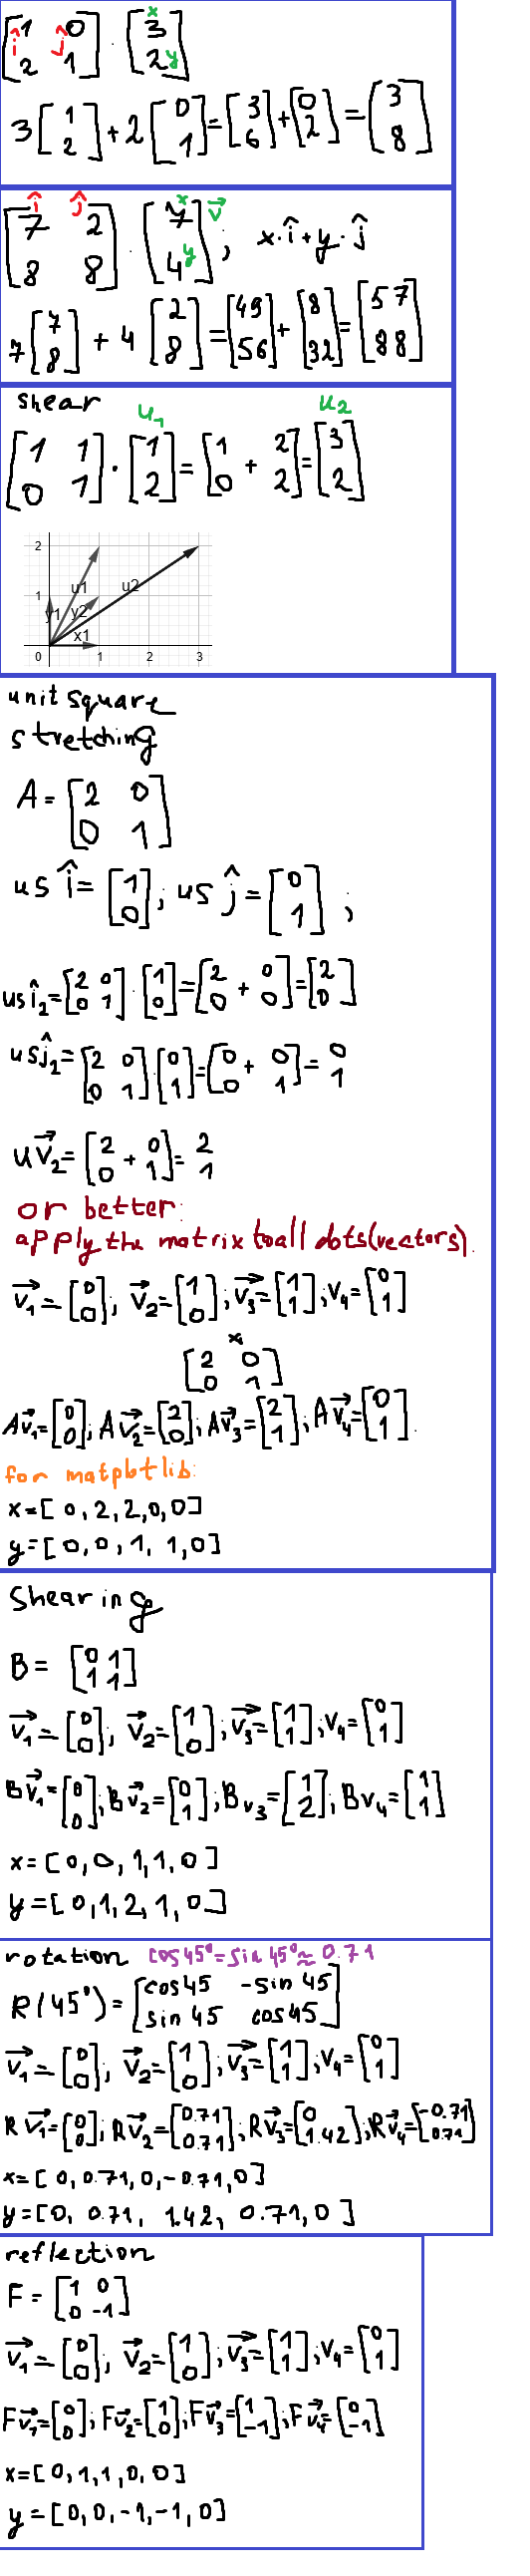 [1 0; 2 1] · [3; 2] î ĵ x y
3[1; 2] + 2[0; 1] = [3; 6] + [0; 2] = [3; 8]
[7 2; 8 8] · [7; 4] î ĵ x y v⃗ ; x·î + y·ĵ
7[7; 8] + 4[2; 8] = [49; 56] + [8; 32] = [57; 88]
shear u1 u2
[1 1; 0 1] · [1; 2] = [1; 0 + 2; 2] = [3; 2]
2
1 u1 u2
y1 y2
x1
0 1 2 3
unit square
stretching
A = [2 0; 0 1]
us î = [1; 0]; us ĵ = [0; 1];
us î2 = [2 0; 0 1] · [1; 0] = [2; 0 + 0; 0] = [2; 0]
us ĵ2 = [2 0; 0 1] [0; 1] = [0; 0 + 0; 1] = 0; 1
u v⃗2 = [2; 0 + 0; 1] = 2; 1
or better:
apply the matrix to all dots(vectors).
v⃗1 = [0; 0]; v⃗2 = [1; 0]; v⃗3 = [1; 1]; v4 = [0; 1]
[2 0; 0 1]
Av⃗1 = [0; 0]; Av⃗2 = [2; 0]; Av⃗3 = [2; 1]; Av⃗4 = [0; 1].
for matplotlib:
x=[0,2,2,0,0]
y=[0,0,1,1,0]
Shearing
B = [0 1; 1 1]
v⃗1 = [0; 0]; v⃗2 = [1; 0]; v⃗3 = [1; 1]; v4 = [0; 1]
Bv⃗1 = [0; 0]; Bv⃗2 = [0; 1]; Bv3 = [1; 2]; Bv4 = [1; 1]
x=[0,0,1,1,0]
y=[0,1,2,1,0]
rotation cos45° = sin45° ≈ 0.71
R(45°) = [cos45 -sin45; sin45 cos45]
v⃗1 = [0; 0]; v⃗2 = [1; 0]; v⃗3 = [1; 1]; v4 = [0; 1]
Rv⃗1 = [0; 0]; Rv⃗2 = [0.71; 0.71]; Rv⃗3 = [0; 1.42]; Rv⃗4 = [-0.71; 0.71]
x=[0,0.71,0,-0.71,0]
y=[0, 0.71, 1.42, 0.71,0]
reflection
F = [1 0; 0 -1]
v⃗1 = [0; 0]; v⃗2 = [1; 0]; v⃗3 = [1; 1]; v4 = [0; 1]
Fv⃗1 = [0; 0]; Fv⃗2 = [1; 0]; Fv⃗3 = [1; -1]; Fv⃗4 = [0; -1]
x=[0,1,1,0,0]
y=[0,0,-1,-1,0]